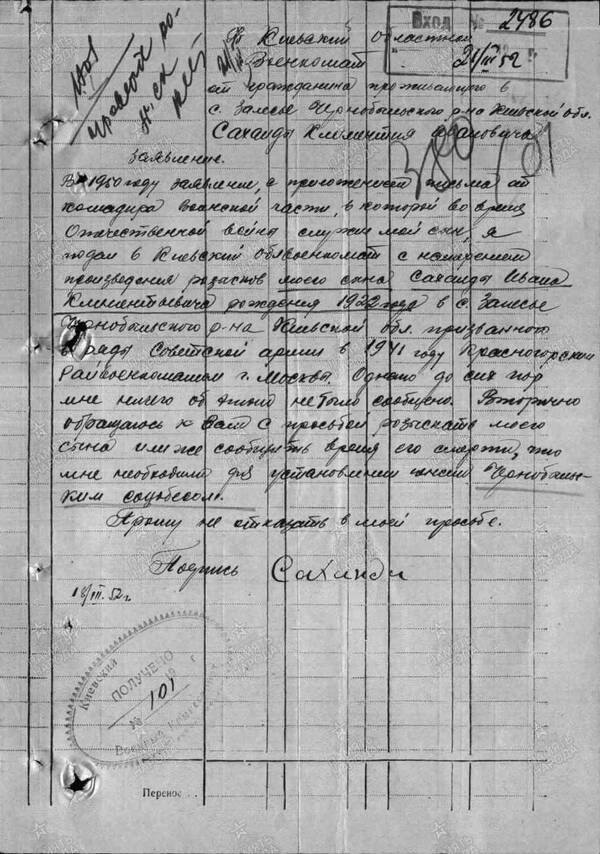 Вход № 2486
21/III 52 г.
Киевский Областной
Военкомат
от гражданина проживающего в
с. Залесье Чернобыльского р-на Киевской обл.
Саханды Климентия Ивановича
380/01
Заявление.
В 1950 году заявление, с приложением письма от
командира воинской части, в которой во время
Отечественной войны служил мой сын, я
подал в Киевский облвоенкомат с намерением
произведения розысков моего сына Саханды Ивана
Климентьевича рождения 1922 года в с. Залесье
Чернобыльского р-на Киевской обл. призванного
в ряды Советской армии в 1941 году Красногорским
Райвоенкоматом г. Москва. Однако до сих пор
мне ничего об этом не было сообщено. Вторично
обращаюсь к Вам с просьбой розыскать моего
сына или же сообщить время его смерти, что
мне необходимо для установления пенсии Чернобыль-
ким соцобесом.
Прошу не отказать в моей просьбе.
Подпись Саханда
18/III. 52 г.
Киевский
ПОЛУЧЕНО
№ 101
Перенос